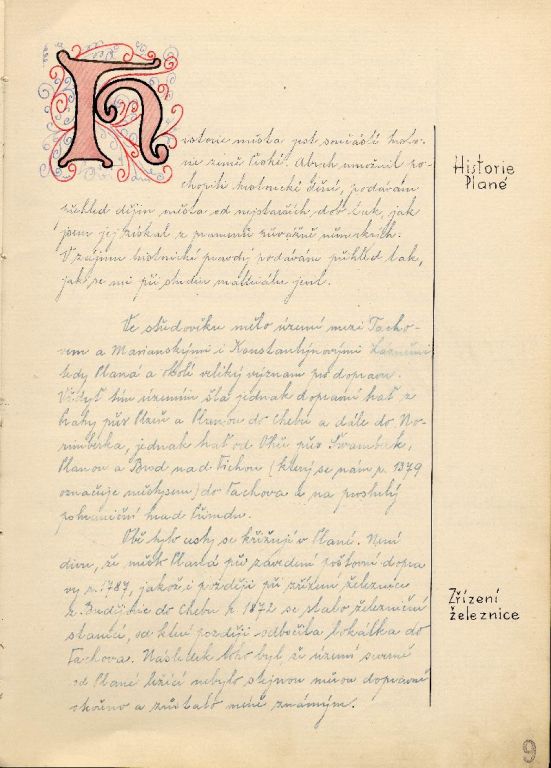 Historie
Plané
Historie města jest součástí histo-
rie země České. Abych umožnil po-
chopiti historické dění, podávám
přehled dějin města od nejstarších dob tak, jak
jsem jej získal z pramenů převážně německých.
V zájmu historické pravdy podávám přehled tak,
jak se mi při studiu materiálu jevil.
Ve středověku mělo území mezi Tacho-
vem a Mariánskými i Konstantýnovými Lázněmi
tedy Planá a okolí veliký význam pro dopravu.
Vždyť tím územím šla jednak dopravní trať z
Prahy přes Plzeň a Planou do Chebu a dále do No-
rimberka, jednak trať od Ohře přes Švamberk,
Planou a Brod nad Tichou (který se nám r. 1379
označuje městysem) do Tachova a na proslulý
pohraniční hrad Přimdu.
Obě tyto cesty se křižují v Plané. Není
divu, že město Planá při zavedení poštovní dopra
vy r. 1787, jakož i později při zřízení železnice
z Budějovic do Chebu r. 1872 se stalo železniční
stanicí, od které později odbočila lokálka do
Tachova. Následek toho byl že území severně
od Plané ležící nebylo stejnou měrou dopravně
otevřeno a zůstalo méně známým.
Zřízení
železnice
9